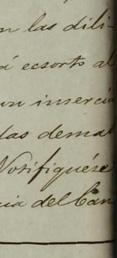 n las dili-
á ecsorto al
on inserció
las demas
Notifiquése
cia del Can